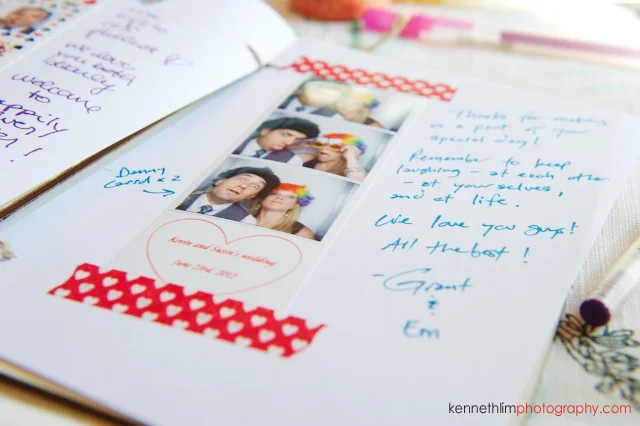 we love
you both
dearly
welcome
to
happily
ever
Thanks for making
us a part of your
special day!
Remember to keep
laughing - at each other
- at yourselves,
and at life.
We love you guys!
All the best!
- Grant
&
Em
- Danny
Kevin and Susan's wedding
June 23rd, 2012
kennethlimphotography.com